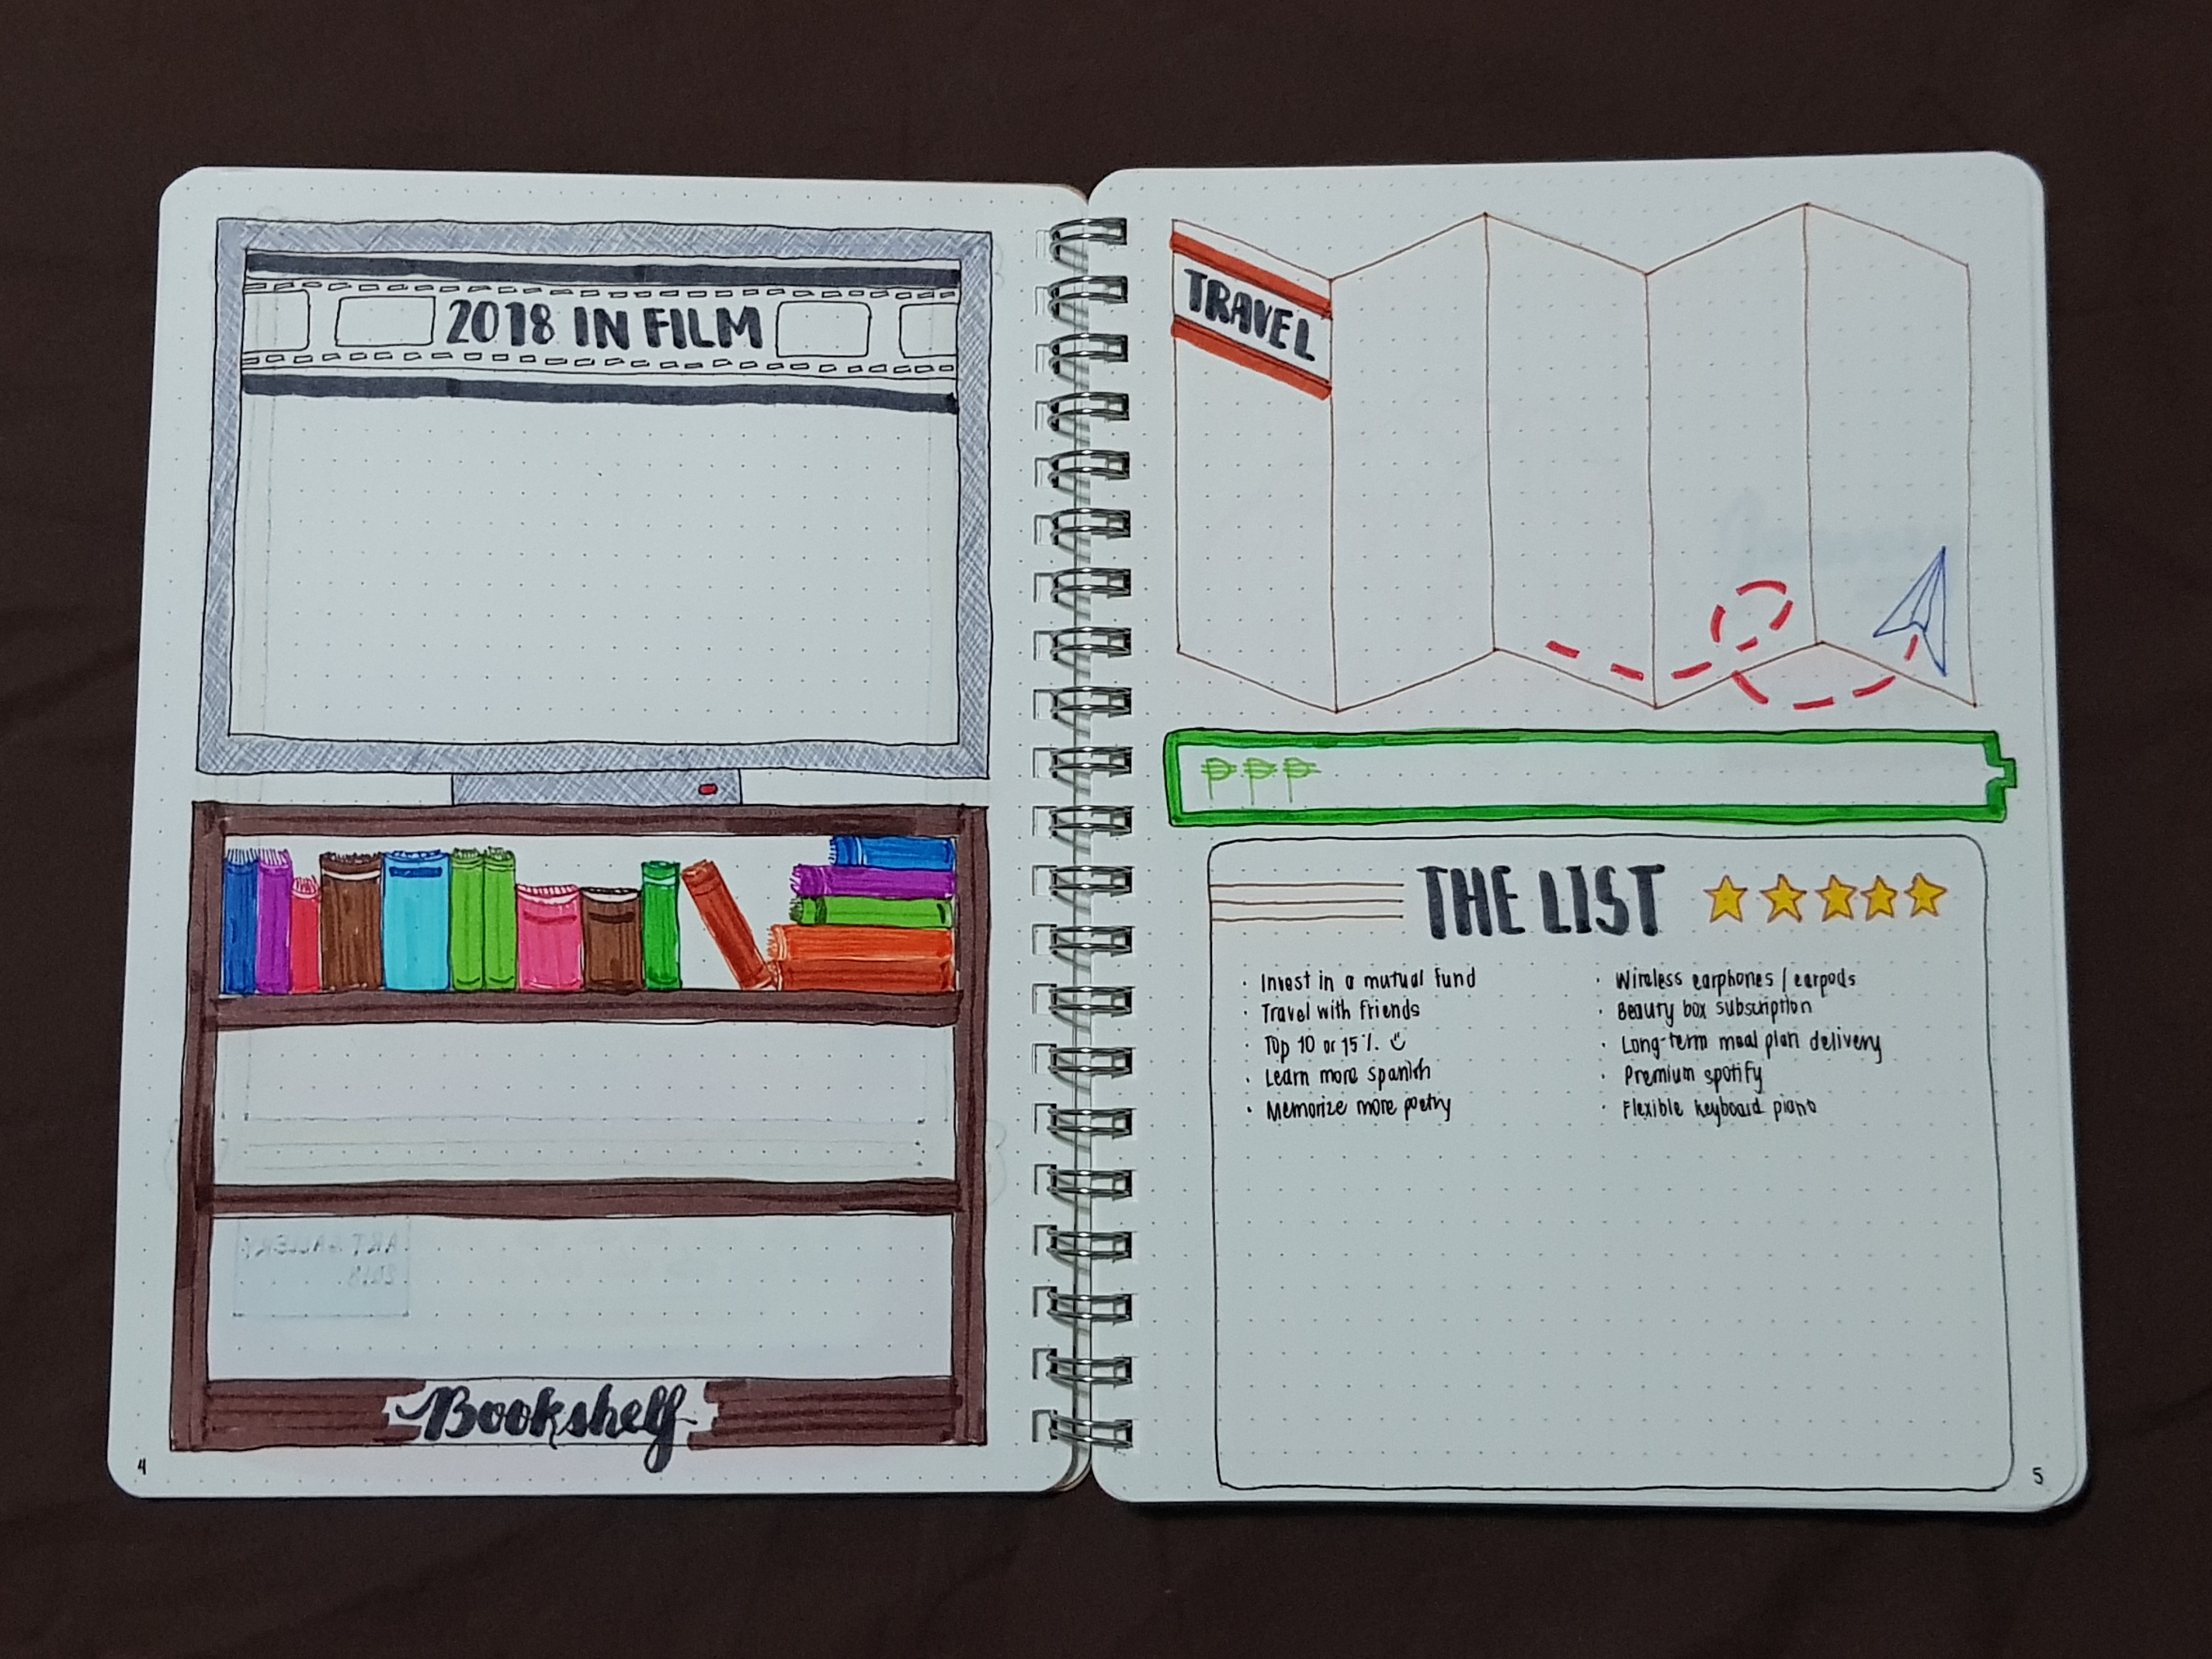 2018 IN FILM
Bookshelf
4
TRAVEL
₱₱₱
THE LIST
· Invest in a mutual fund
· Travel with friends
· Top 10 or 15%. ☺
· Learn more spanish
· Memorize more poetry
· Wireless earphones / earpods
· Beauty box subscription
· Long-term meal plan delivery
· Premium spotify
· Flexible keyboard piano
5
ART GALLERY
2018